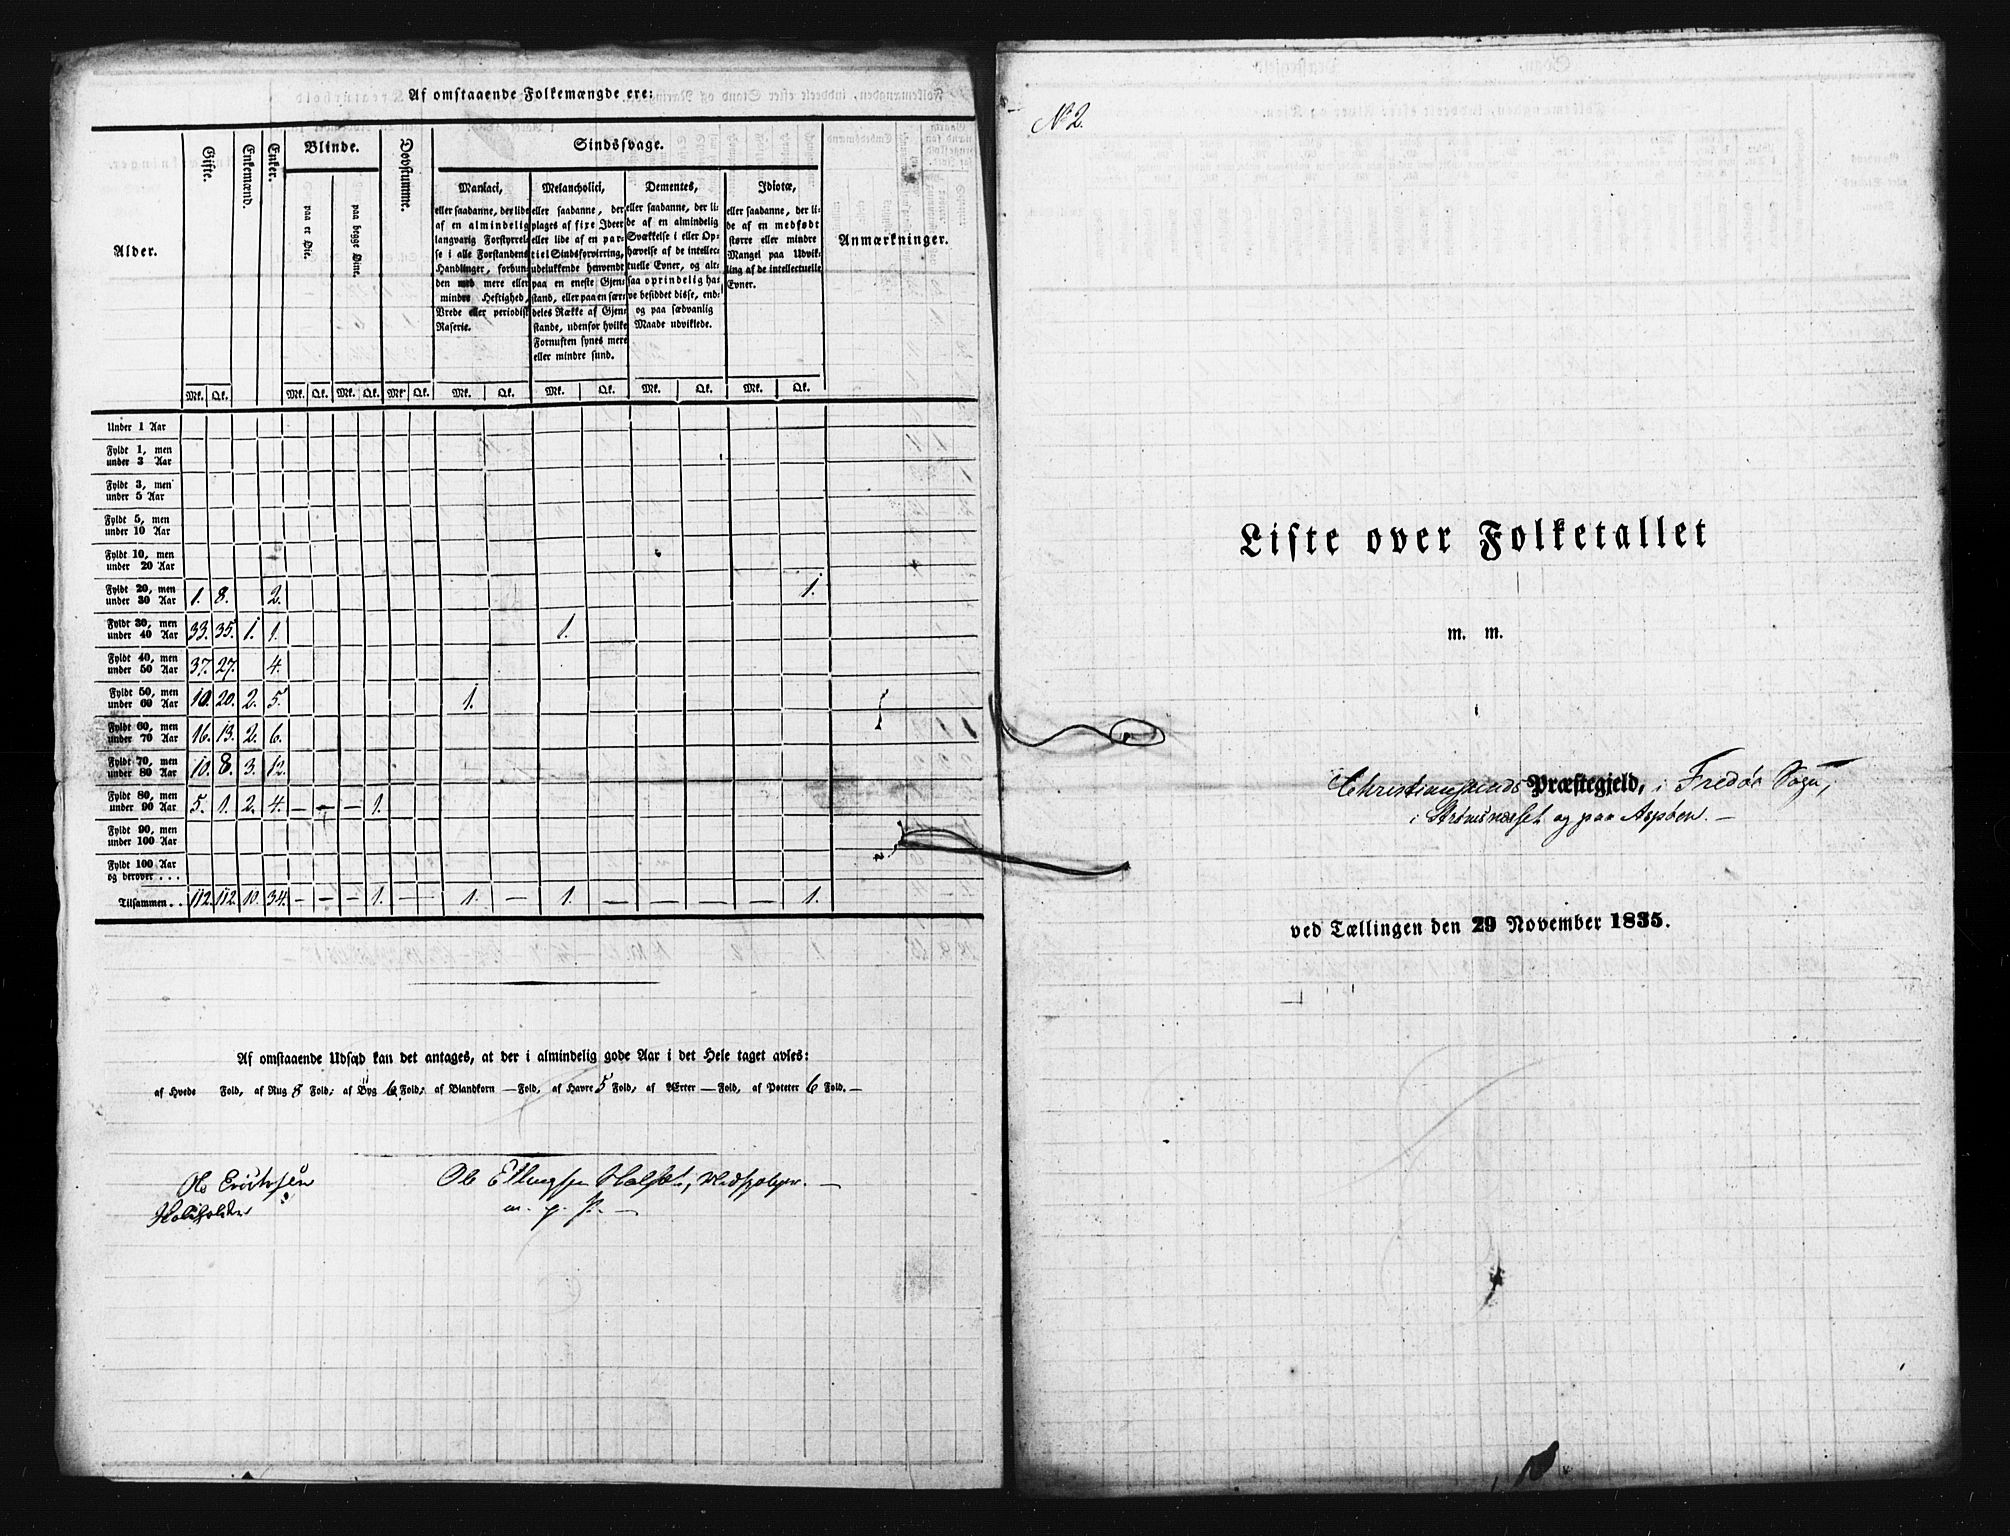 Af omstaaende Folkemængde ere:
Alder.
Gifte.
Enkemænd.
Enker.
Blinde.
paa et Øie.
paa begge Øine.
Døvstumme.
Sindssvage.
Maniaci,
eller saadanne, der lide
af en almindelig
langvarig Forstyrrel-
se i alle Forstandens
Handlinger, forbun-
den med mere eller
mindre Heftighed,
Vrede eller periodisk
Raserie.
Melancholici,
eller saadanne, der
plages af fixe Ideer
eller lide af en par-
tiel Sindsforvirring,
udelukkende henvendt
paa en eneste Gjen-
stand, eller paa en sær-
deles Række af Gjen-
stande, udenfor hvilke
Fornuften synes mere
eller mindre sund.
Dementes,
eller saadanne, der li-
de af en almindelig
Svækkelse i eller Op-
hævelse af de intellec-
tuelle Evner, og alt-
saa oprindelig ha-
ve besiddet disse, end-
og paa sædvanlig
Maade udviklede.
Idiotæ,
eller saadanne, der li-
de af en medfødt
større eller mindre
Mangel paa Udvik-
ling af de intellectuelle
Evner.
Anmærkninger.
Mk. Qk. Mk. Qk. Mk. Qk. Mk. Qk. Mk. Qk. Mk. Qk. Mk. Qk. Mk. Qk.
Under 1 Aar
Fyldt 1, men
under 3 Aar
Fyldt 3, men
under 5 Aar
Fyldt 5, men
under 10 Aar
Fyldt 10, men
under 20 Aar
Fyldt 20, men
under 30 Aar 1. 8. 2. 1.
Fyldt 30, men
under 40 Aar 33. 35. 1. 1. 1.
Fyldt 40, men
under 50 Aar 37. 27. 4.
Fyldt 50, men
under 60 Aar 10. 20. 2. 5. 1.
Fyldt 60, men
under 70 Aar 16. 13. 2. 6.
Fyldt 70, men
under 80 Aar 10. 8. 3. 12.
Fyldt 80, men
under 90 Aar 5. 1. 2. 4. — — — 1.
Fyldt 90, men
under 100 Aar
Fyldt 100 Aar
og derover . . .
Tilsammen . . 112. 112. 10. 34. — — — 1. — — 1. — 1. — — — — 1.
Af omstaaende Udsæd kan det antages, at der i almindelig gode Aar i det Hele taget avles:
af Hvede Fold, af Rug 8 Fold; af Byg 6 Fold; af Blandkorn — Fold, af Havre 5 Fold; af Ærter — Fold, af Poteter 6 Fold. —
Ole Erichsen
Ole Ellingsen Halset, Medhjælper. —
m. p. P. —
No 2.
Liste over Folketallet
m. m.
i
Christiansunds Præstegjeld, i Fredøe Sogn,
i Strømsnæsset og paa Aspøen. —
ved Tællingen den 29 November 1835.